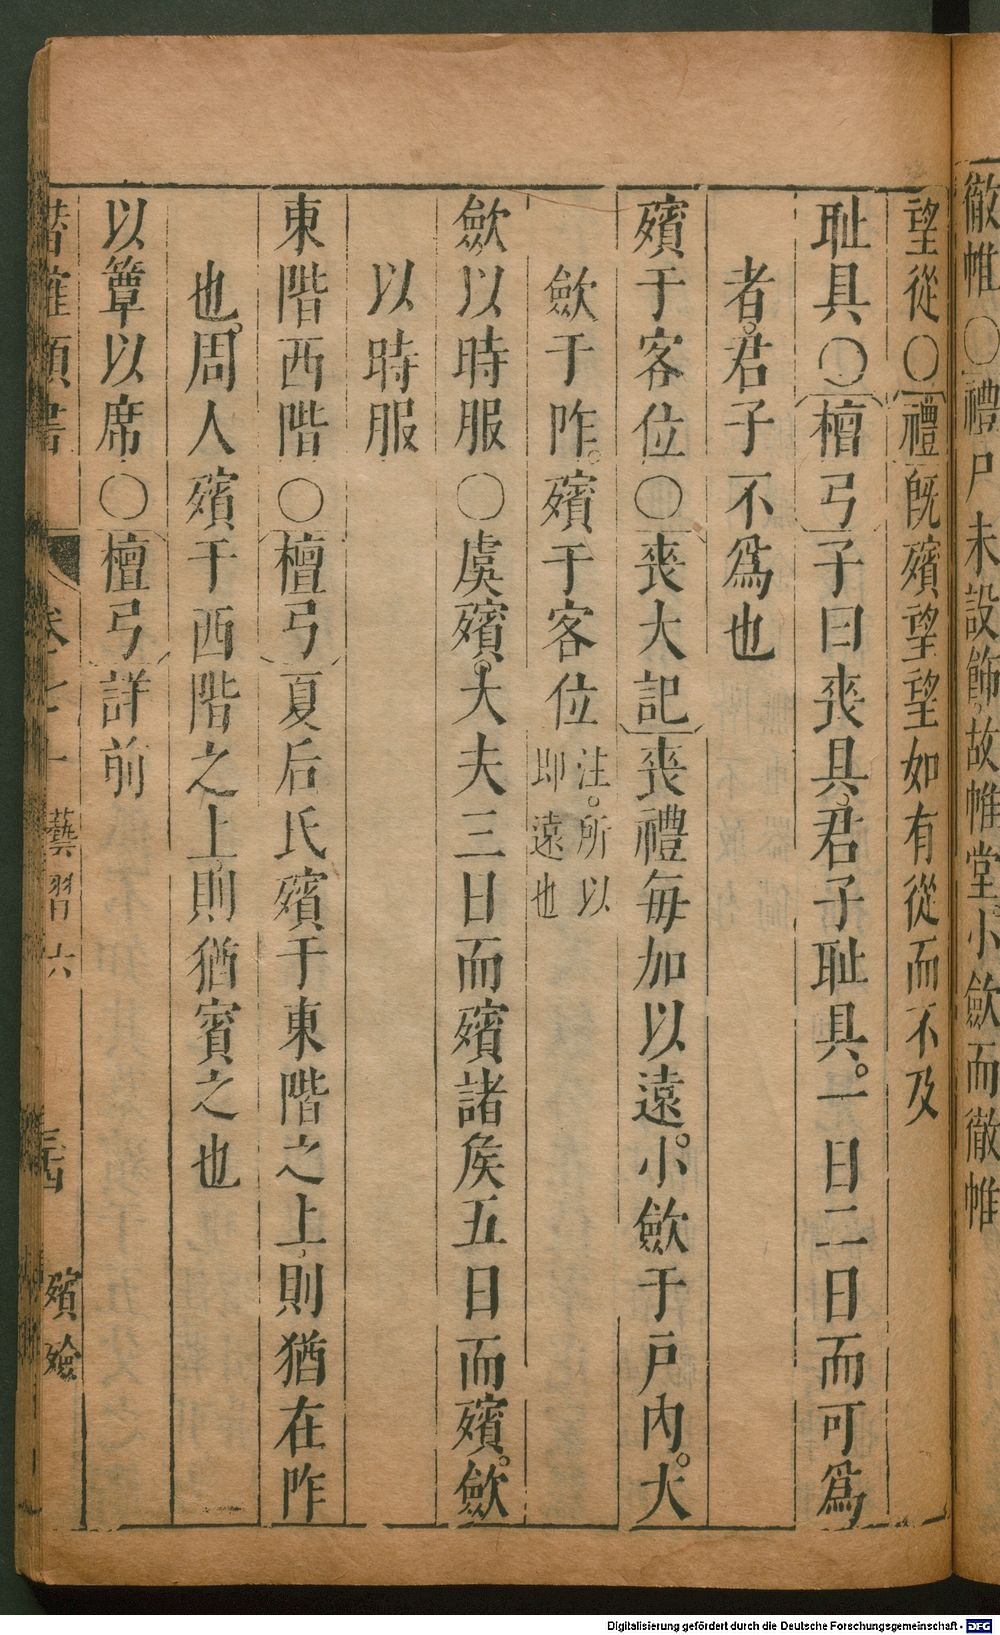 徹帷○禮尸未設飾故帷堂小歛而徹帷
望從○禮旣殯望望如有從而不及
耻具○檀弓子曰喪具君子耻具。一日二日而可爲
者。君子不爲也
殯于客位○喪大記喪禮每加以遠。小歛于戶內。大
歛于阼。殯于客位注。所以即遠也
歛以時服○虞殯。大夫三日而殯諸矦五日而殯。歛
以時服
東階西階○檀弓夏后氏殯于東階之上則猶在阼
也。周人殯于西階之上則猶賓之也
以簟以席○檀弓詳前
卷七十一 藝習六 殯殮
Digitalisierung gefördert durch die Deutsche Forschungsgemeinschaft - DFG